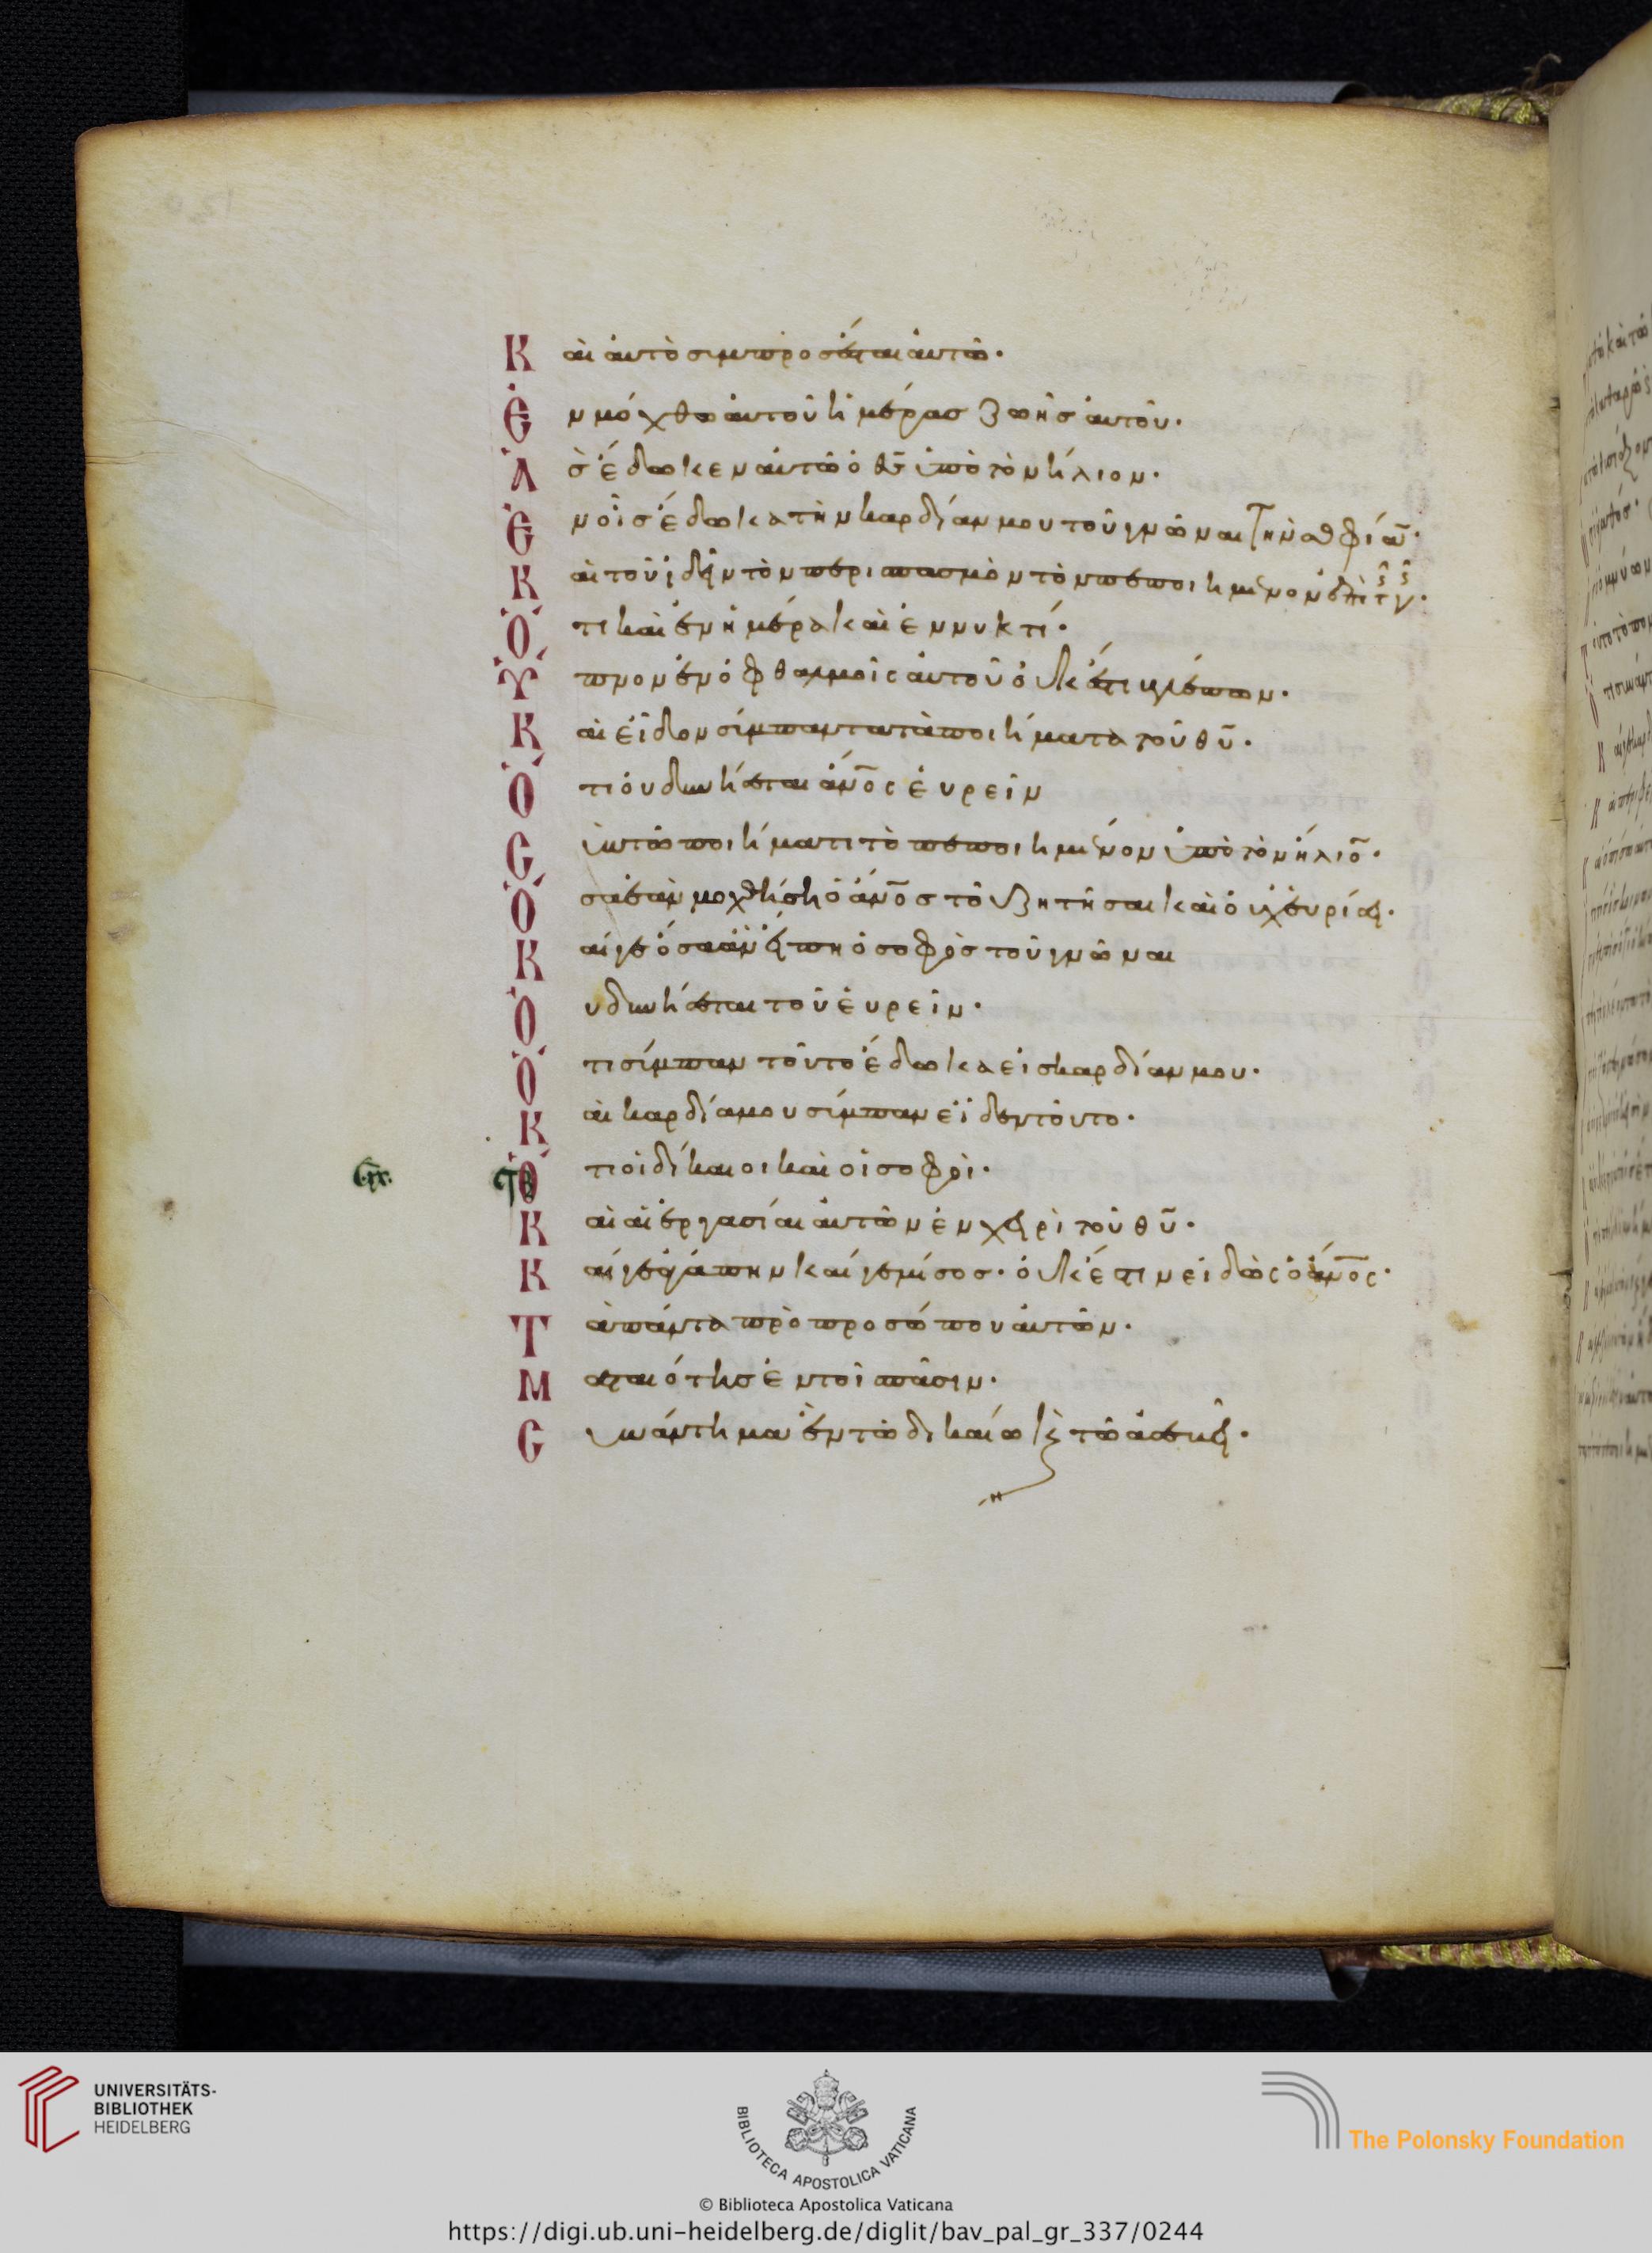 Και ἀυτὸ συμπρόσέσται ἀυτῶ·
Ἐν μόχθω ἀυτοῦ ἡμέρασ ζωῆσ ἀυτοῦ·
Ἅσ ἔδωκεν ἀυτῶ ὁ θς ὑπὸ τὸν ἥλιον·
Ἐν οἷσ ἔδωκα τὴν καρδίαν μου τοῦ γνῶναι τὴν σοφίαν·
Καὶ τοῦ ἰδεῖν τὸν περισπασμὸν τὸν πεποιημένον ἐπὶ τῆς γῆς·
Ὅτι καὶ ἐν ἡμέρα καὶ ἐν νυκτί·
Ὕπνον ἐν ὀφθαλμοῖς ἀυτοῦ ὀυκ ἔστι βλέπων·
Καὶ εἶδον σύμπαντα τὰ ποιήματα τοῦ θυ·
Ὅτι ὀυ δυνήσεται ἀνος ἑυρεῖν
Cὺν τῶ ποιήματι τὸ πεποιημένον ὑπὸ τὸν ἥλιον·
Ὅσα ἐὰν μοχθήση ὁ ἀνοσ τοῦ ζητῆσαι καὶ ὀυχ ἑυρήσει·
Καίγε ὅσα ἂν εἴπη ὁ σοφὸσ τοῦ γνῶναι
Ὀυ δυνήσεται τοῦ ἑυρεῖν·
Ὅτι σύμπαν τοῦτο ἔδωκα εἰσ καρδίαν μου·
Καὶ καρδία μου σύμπαν εἶδεν τοῦτο·
Ὅτι οἱ δίκαιοι καὶ οἱ σοφοὶ·
Καὶ αἱ ἐργασίαι ἀυτῶν ἐν χειρὶ τοῦ θυ·
Καίγε ἀγάπην καίγε μίσοσ· ὀυκ ἔστιν εἰδὼς ὁ ἀνος·
Τὰ πάντα πρὸ προσώπου ἀυτῶν·
Ματαιότησ ἐν τοῖ πᾶσιν·
Cυνάντημα ἓν τῶ δικαίω κὶ τῶ ἀσεβεῖ·
UNIVERSITÄTS-
BIBLIOTHEK
HEIDELBERG
BIBLIOTECA APOSTOLICA VATICANA
The Polonsky Foundation
© Biblioteca Apostolica Vaticana
https://digi.ub.uni-heidelberg.de/diglit/bav_pal_gr_337/0244